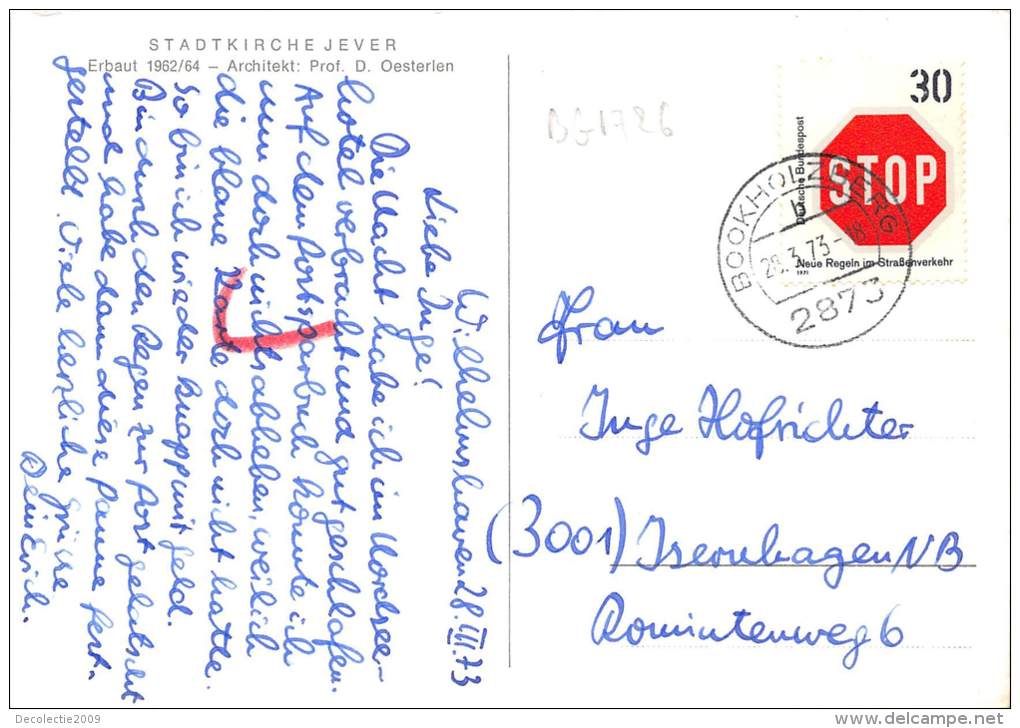 STADTKIRCHE JEVER
Erbaut 1962/64 – Architekt: Prof. D. Oesterlen
Wilhelmshaven 28.III.73
Liebe Inge!
Die Nacht habe ich im Nordsee-
hotel verbracht und gut geschlafen.
Auf dem Postsparbuch konnte ich
nun doch nichts abheben, weil ich
die blaue Karte doch nicht hatte.
So bin ich wieder knapp mit Geld.
Bin durch den Regen zur Post gelatscht
und habe dann diese Panne fest-
gestellt. Viele herzliche Grüsse
Dein Erich.
BG1726
30
STOP
Deutsche Bundespost
Neue Regeln im Straßenverkehr
1971
BOOKHOLZBERG
b
28.3.73-18
2873
Frau
Inge Hofrichter
(3001) Isernhagen NB
Rominterweg 6
Decolectie2009
www.delcampe.net